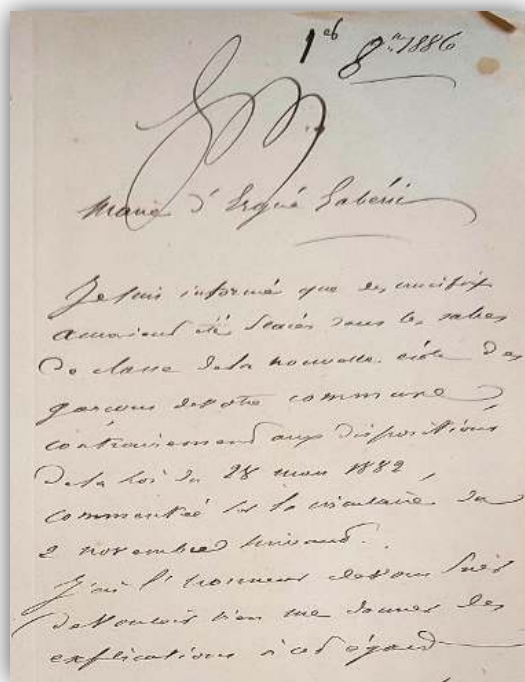 1er 8bre 1886
Maire d'Ergué Gabéric
Je suis informé que des crucifix
auraient été placés dans les salles
de classe de la nouvelle école des
garçons de votre commune
contrairement aux dispositions
de la loi du 28 mars 1882,
commentée par la circulaire du
2 novembre suivant.
J'ai l'honneur de vous prier
de vouloir bien me donner des
explications à cet égard